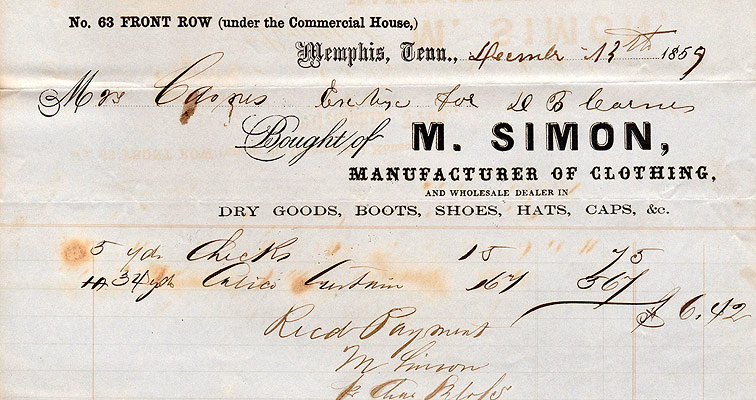 No. 63 FRONT ROW (under the Commercial House,)
Memphis, Tenn., December 13th 1859
Mrs for
Bought of M. SIMON,
MANUFACTURER OF CLOTHING,
AND WHOLESALE DEALER IN
DRY GOODS, BOOTS, SHOES, HATS, CAPS, &c.
5 yds Checks 15 75
34 yds Calico Curtain 16⅔ 567
$ 6.42
Recd Payment
M Simon